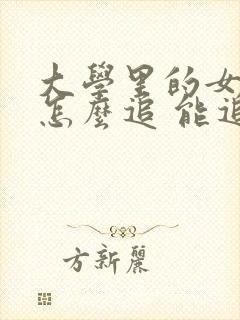 大學里的女
怎麼追 能追
方新麗